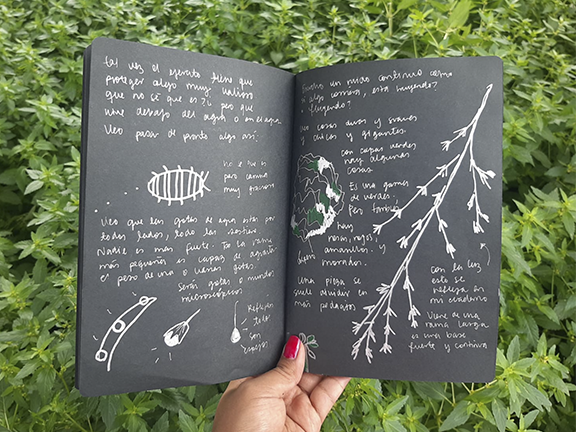 tal vez el ejercito tiene que
proteger algo muy valioso
que no sé que es? y pero que
vive debajo del agua o en el agua
Veo pasar de pronto algo así:
no se que es
pero camina
muy gracioso
Veo que las gotas de agua estan por
todos lados, todo las sostiene
Nadie es más fuerte. So la rama
más pequeña es capaz de aguantar
el peso de una o varias gotas
Serán gotas o mundos
microscópicos
Reflejan
todo
son
Escucho un ruido continuo como
si algo corriera, está huyendo?
fluyendo?
Veo cosas duras y suaves
y chicas y gigantes
con capas verdes
hay algunas
cosas
Es una gama
de verdes,
Pero también
hay
rosas, rojos,
amarillos y
morados.
Una pieza se
puede dividir en
más pedazos
con la luz
esto se
refleja en
mi cuaderno
Viene de una
rama larga
es una base
fuerte y continua